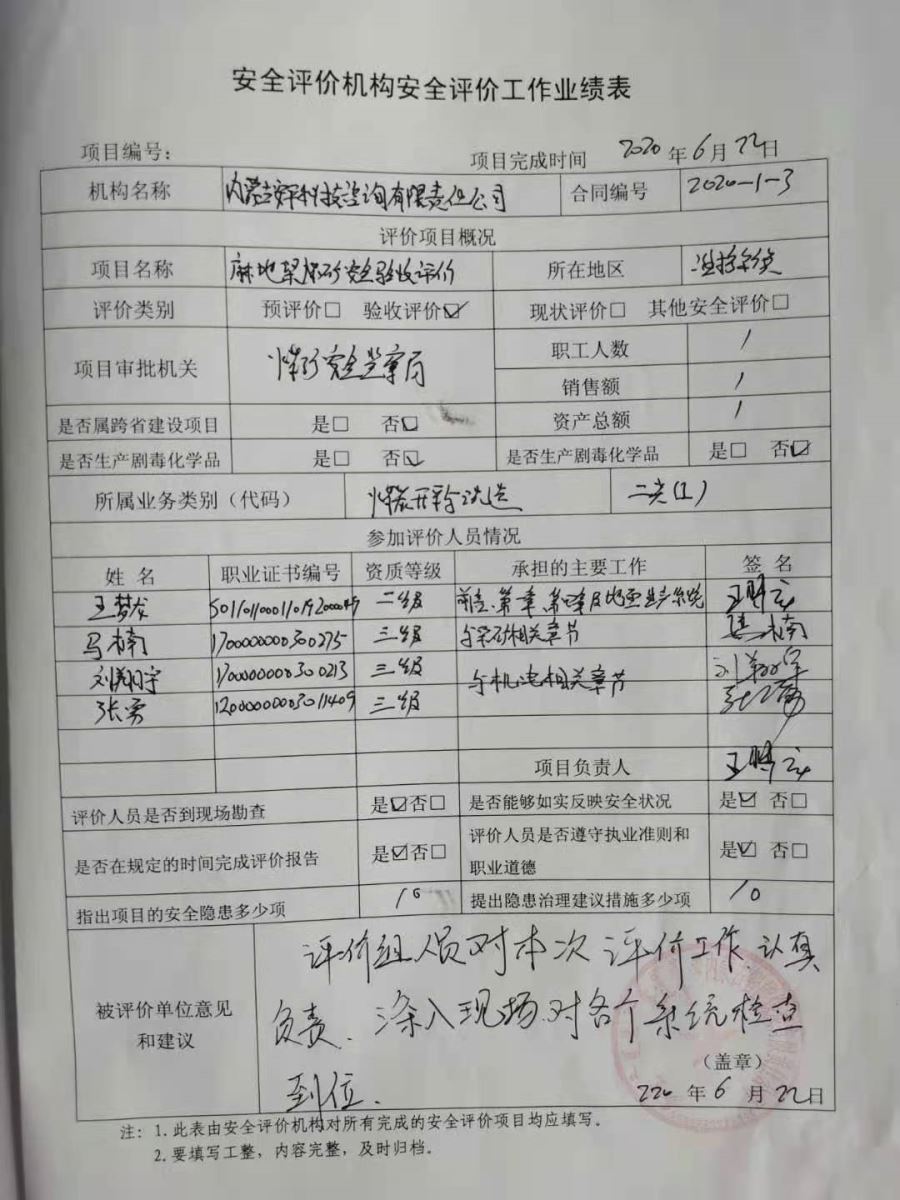 安全评价机构安全评价工作业绩表
项目编号： 项目完成时间 2020年6月22日
机构名称 内蒙古安邦科技咨询有限责任公司 合同编号 2020-1-3
评价项目概况
项目名称 麻地梁煤矿安全验收评价 所在地区
评价类别 预评价□ 验收评价☑ 现状评价□ 其他安全评价□
项目审批机关 煤矿安全监察局 职工人数 /
销售额 /
是否属跨省建设项目 是□ 否☑ 资产总额 /
是否生产剧毒化学品 是□ 否☑ 是否生产剧毒化学品 是□ 否☑
所属业务类别（代码） 煤炭开采与洗选 二类(1)
参加评价人员情况
姓 名 职业证书编号 资质等级 承担的主要工作 签 名
王梦龙 二级
马楠 1700000000300275 三级 与采矿相关章节 马楠
刘翔宇 1700000000300213 三级 与机电相关章节 刘翔宇
张勇 1200000000301409 三级 张勇
项目负责人
评价人员是否到现场勘查 是☑否□ 是否能够如实反映安全状况 是☑ 否□
是否在规定的时间完成评价报告 是☑否□ 评价人员是否遵守执业准则和
职业道德 是☑ 否□
指出项目的安全隐患多少项 10 提出隐患治理建议措施多少项 10
被评价单位意见
和建议
评价组人员对本次评价工作、认真
负责、深入现场、对各个系统检查
到位.
（盖章）
220年6月22日
注：1. 此表由安全评价机构对所有完成的安全评价项目均应填写。
2. 要填写工整，内容完整，及时归档。